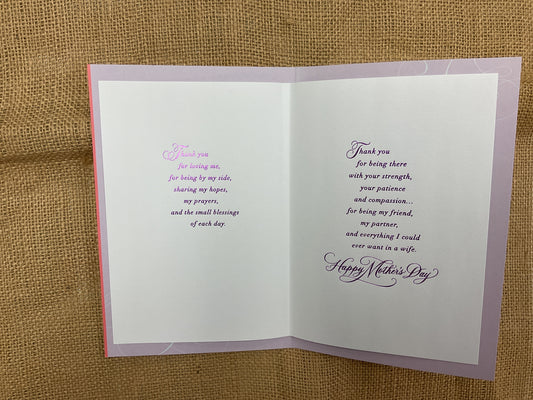 Thank you
for loving me,
for being by my side,
sharing my hopes,
my prayers,
and the small blessings
of each day.
Thank you
for being there
with your strength,
your patience
and compassion...
for being my friend,
my partner,
and everything I could
ever want in a wife.
Happy Mother's Day